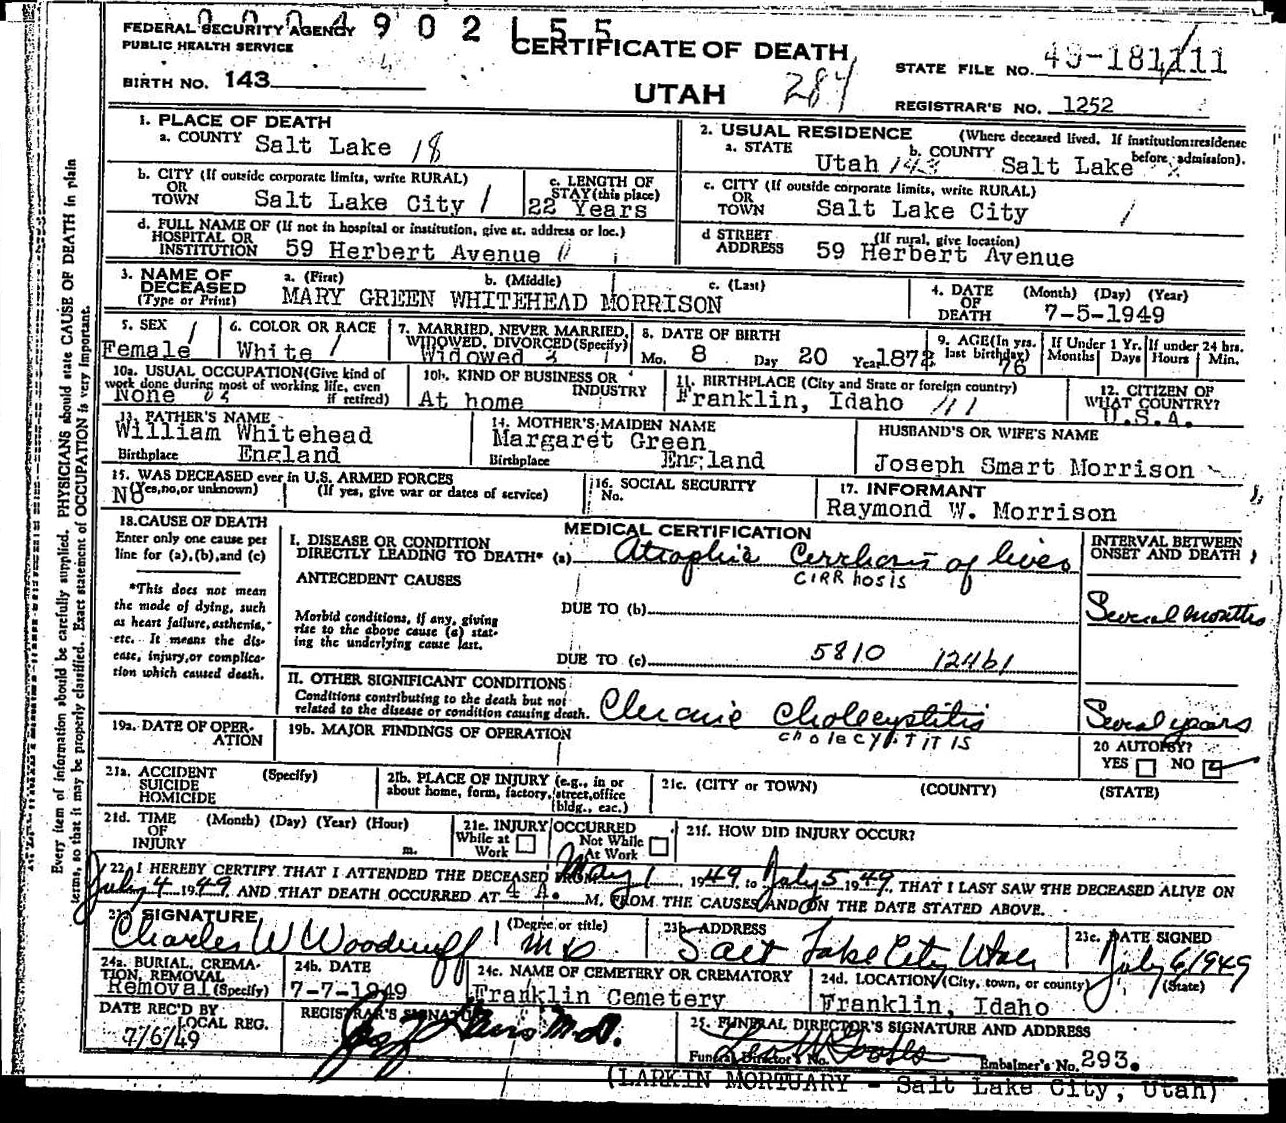 0004902155
FEDERAL SECURITY AGENCY
PUBLIC HEALTH SERVICE
CERTIFICATE OF DEATH
STATE FILE NO. 49-181111
BIRTH NO. 143
UTAH 284
REGISTRAR'S NO. 1252
1. PLACE OF DEATH
a. COUNTY Salt Lake 18
2. USUAL RESIDENCE (Where deceased lived. If institution:residence before admission).
a. STATE Utah 143 b. COUNTY Salt Lake
b. CITY (If outside corporate limits, write RURAL)
OR
TOWN Salt Lake City 1
c. LENGTH OF
STAY (this place)
22 Years
c. CITY (If outside corporate limits, write RURAL)
OR
TOWN Salt Lake City 1
d. FULL NAME OF (If not in hospital or institution, give st. address or loc.)
HOSPITAL OR
INSTITUTION 59 Herbert Avenue
d STREET
ADDRESS (If rural, give location)
59 Herbert Avenue
3. NAME OF
DECEASED
(Type or Print)
a. (First) b. (Middle) c. (Last)
MARY GREEN WHITEHEAD MORRISON
4. DATE (Month) (Day) (Year)
OF
DEATH 7-5-1949
5. SEX 1
Female
6. COLOR OR RACE
White 1
7. MARRIED, NEVER MARRIED,
WIDOWED, DIVORCED (Specify)
Widowed 3
8. DATE OF BIRTH
Mo. 8 Day 20 Year 187
9. AGE (In yrs.
last birthday)
76
If Under 1 Yr.
Months Days
If under 24 hrs.
Hours Min.
10a. USUAL OCCUPATION (Give kind of
work done during most of working life, even
if retired)
None
10b. KIND OF BUSINESS OR
INDUSTRY
At home
11. BIRTHPLACE (City and State or foreign country)
Franklin, Idaho
12. CITIZEN OF
WHAT COUNTRY?
U.S.A.
13. FATHER'S NAME
William Whitehead
Birthplace England
14. MOTHER'S MAIDEN NAME
Margaret Green
Birthplace England
HUSBAND'S OR WIFE'S NAME
Joseph Smart Morrison
15. WAS DECEASED ever in U.S. ARMED FORCES
(Yes, no, or unknown) (If yes, give war or dates of service)
No
16. SOCIAL SECURITY
No.
17. INFORMANT
Raymond W. Morrison
18. CAUSE OF DEATH
Enter only one cause per
line for (a), (b), and (c)
*This does not mean
the mode of dying, such
as heart failure, asthenia,
etc. It means the dis-
ease, injury, or complica-
tion which caused death.
MEDICAL CERTIFICATION
I. DISEASE OR CONDITION
DIRECTLY LEADING TO DEATH* (a) Atrophic Cirrhosis of liver
CIRRHOSIS
INTERVAL BETWEEN
ONSET AND DEATH
Several months
ANTECEDENT CAUSES
Morbid conditions, if any, giving
rise to the above cause (a) stat-
ing the underlying cause last.
DUE TO (b)
DUE TO (c) 5810 124b1
II. OTHER SIGNIFICANT CONDITIONS
Conditions contributing to the death but not
related to the disease or condition causing death.
Chronic Cholecystitis
CholeCystitis
Several years
19a. DATE OF OPER-
ATION
19b. MAJOR FINDINGS OF OPERATION
20 AUTOPSY?
YES NO
21a. ACCIDENT (Specify)
SUICIDE
HOMICIDE
21b. PLACE OF INJURY (e.g., in or
about home, form, factory, street, office
bldg., eac.)
21c. (CITY or TOWN) (COUNTY) (STATE)
21d. TIME (Month) (Day) (Year) (Hour)
OF
INJURY m.
21e. INJURY OCCURRED
While at Work Not While At Work
21f. HOW DID INJURY OCCUR?
22. I HEREBY CERTIFY THAT I ATTENDED THE DECEASED FROM May 1, 1949, to July 5 1949, THAT I LAST SAW THE DECEASED ALIVE ON
July 4 1949 AND THAT DEATH OCCURRED AT 4 A. M, FROM THE CAUSES AND ON THE DATE STATED ABOVE.
23. SIGNATURE (Degree or title)
Charles W Woodruff MD
23b. ADDRESS
Salt Lake City Utah
23c. DATE SIGNED
July 6, 1949
24a. BURIAL, CREMA-
TION, REMOVAL
Removal (Specify)
24b. DATE
7-7-1949
24c. NAME OF CEMETERY OR CREMATORY
Franklin Cemetery
24d. LOCATION (City, town, or county) (State)
Franklin, Idaho
DATE REC'D BY
LOCAL REG.
7/6/49
REGISTRAR'S SIGNATURE
M.D.
25. FUNERAL DIRECTOR'S SIGNATURE AND ADDRESS
Funeral Director's No. Embalmer's No. 293.
(LARKIN MORTUARY - Salt Lake City, Utah)
Every item of information should be carefully supplied. PHYSICIANS should state CAUSE OF DEATH in plain
terms, so that it may be properly classified. Exact statement of OCCUPATION is very important.